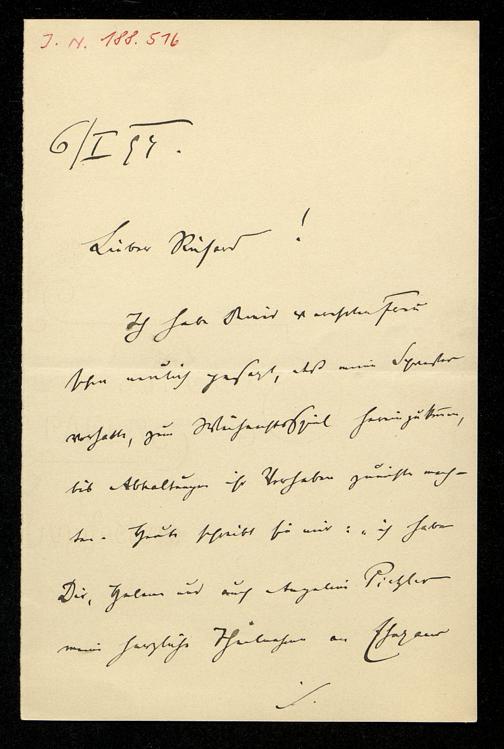 I. N. 188.516
6/I 94.
Lieber Richard!
Ich habe Deiner verehrten Frau
schon neulich gesagt, daß meine Schwester
vorhatte, zum Weihnachtsspiel hereinzukommen,
bis Abhaltungen ihr Vorhaben zunichte mach-
ten. Heute schreibt sie mir: „ich habe
Dir, Helene und auch Angelini Pichler
meine herzliche Theilnahme an